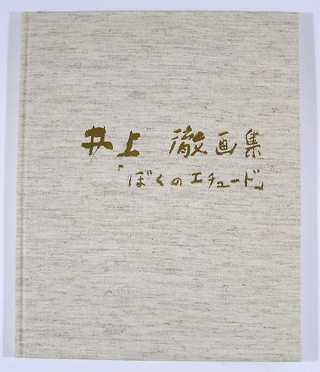 井上 徹画集
「ぼくのエチュード」